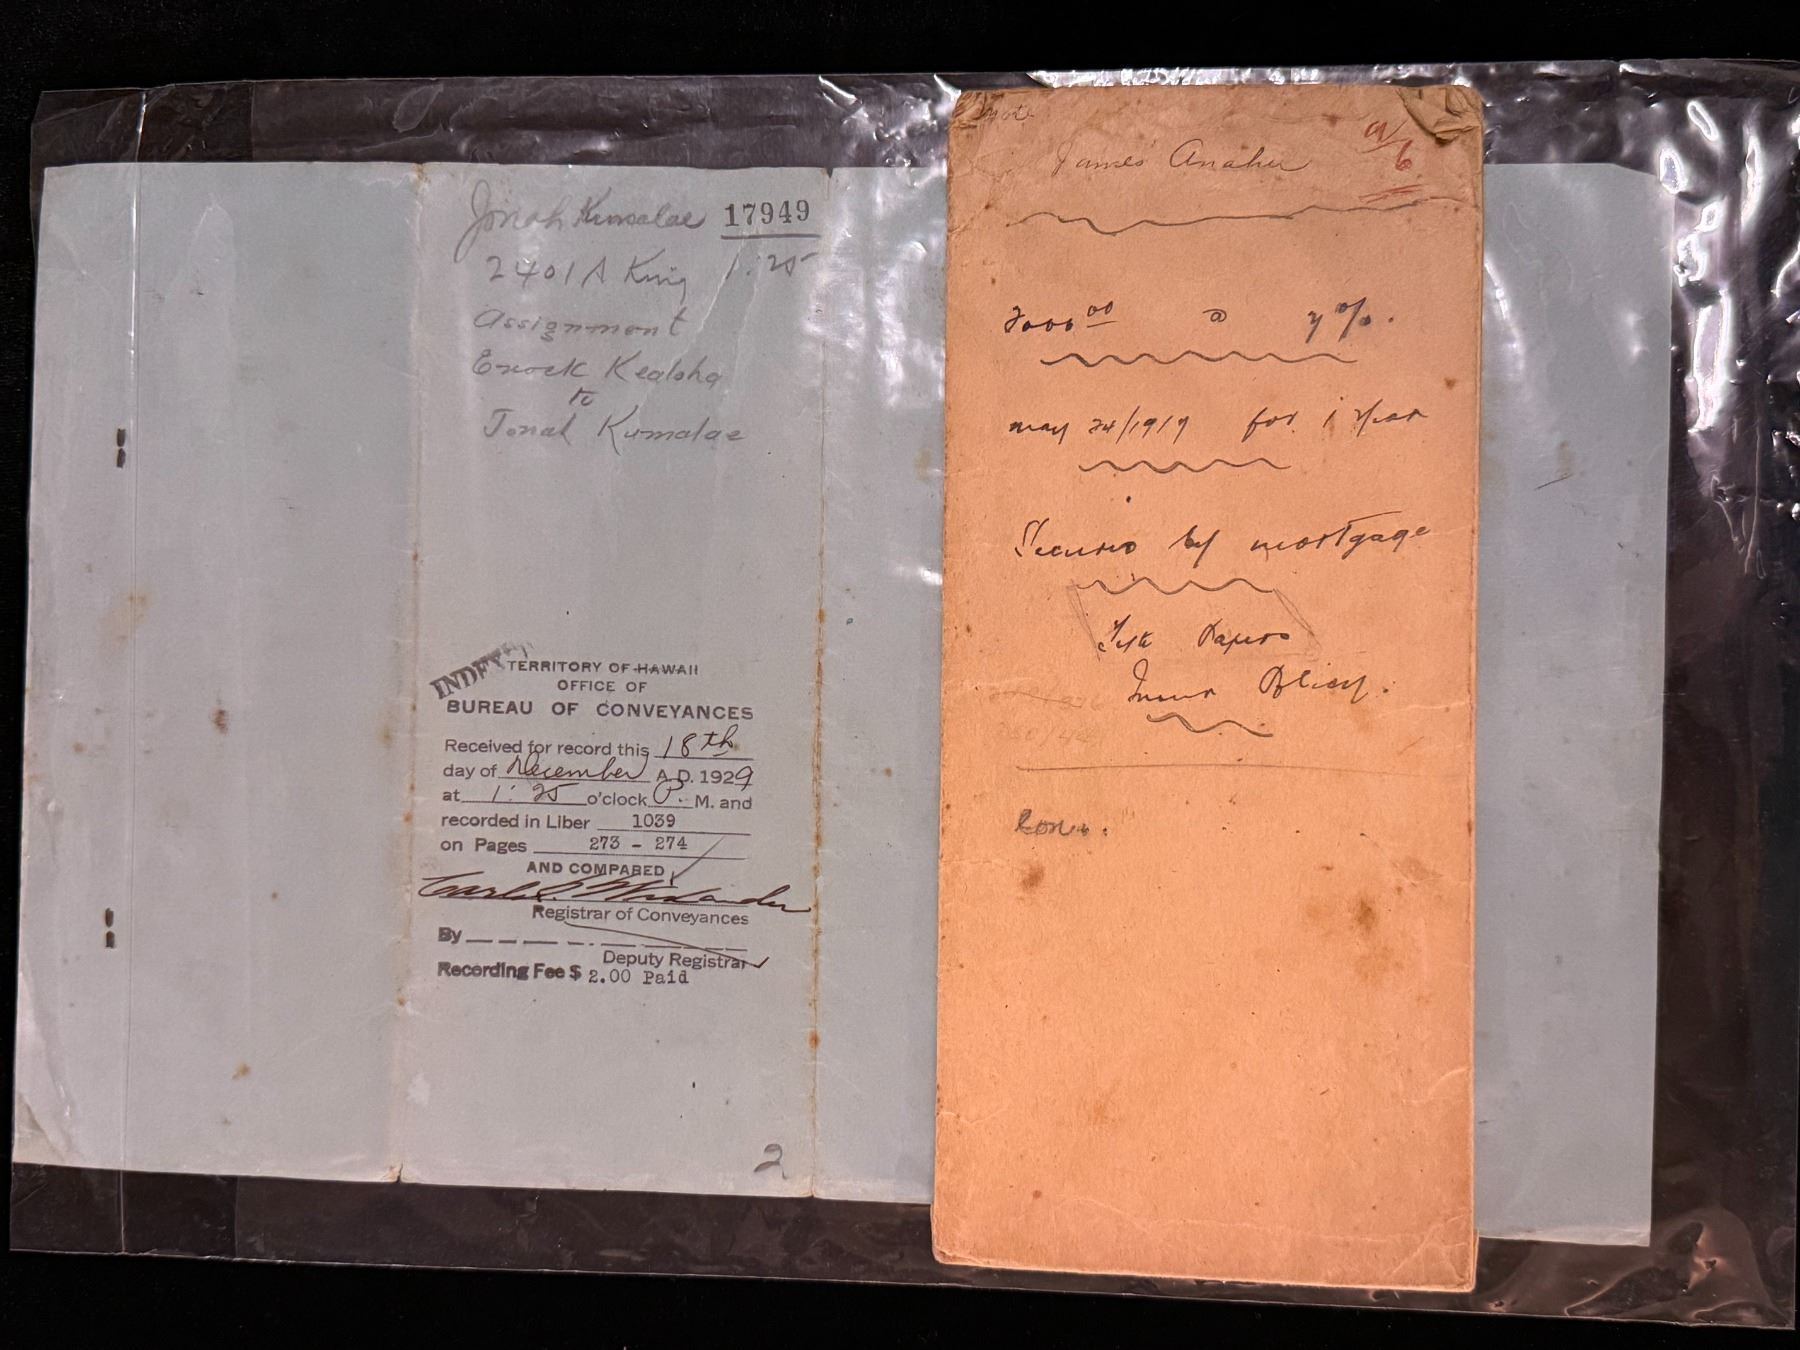 Jonah Kumalae 17949
2401 A King 1:25
Assignment
Enock Kealoha
to
Jonah Kumalae
INDEXED
TERRITORY OF HAWAII
OFFICE OF
BUREAU OF CONVEYANCES
Received for record this 18th
day of December A.D. 1929
at 1:25 o'clock P. M. and
recorded in Liber 1039
on Pages 273 - 274
AND COMPARED
Registrar of Conveyances
By
Deputy Registrar
Recording Fee $ 2.00 Paid
2
James
a/6
00 @ 7%.
may 24/1919 for 1 Year
by mortgage
Papers